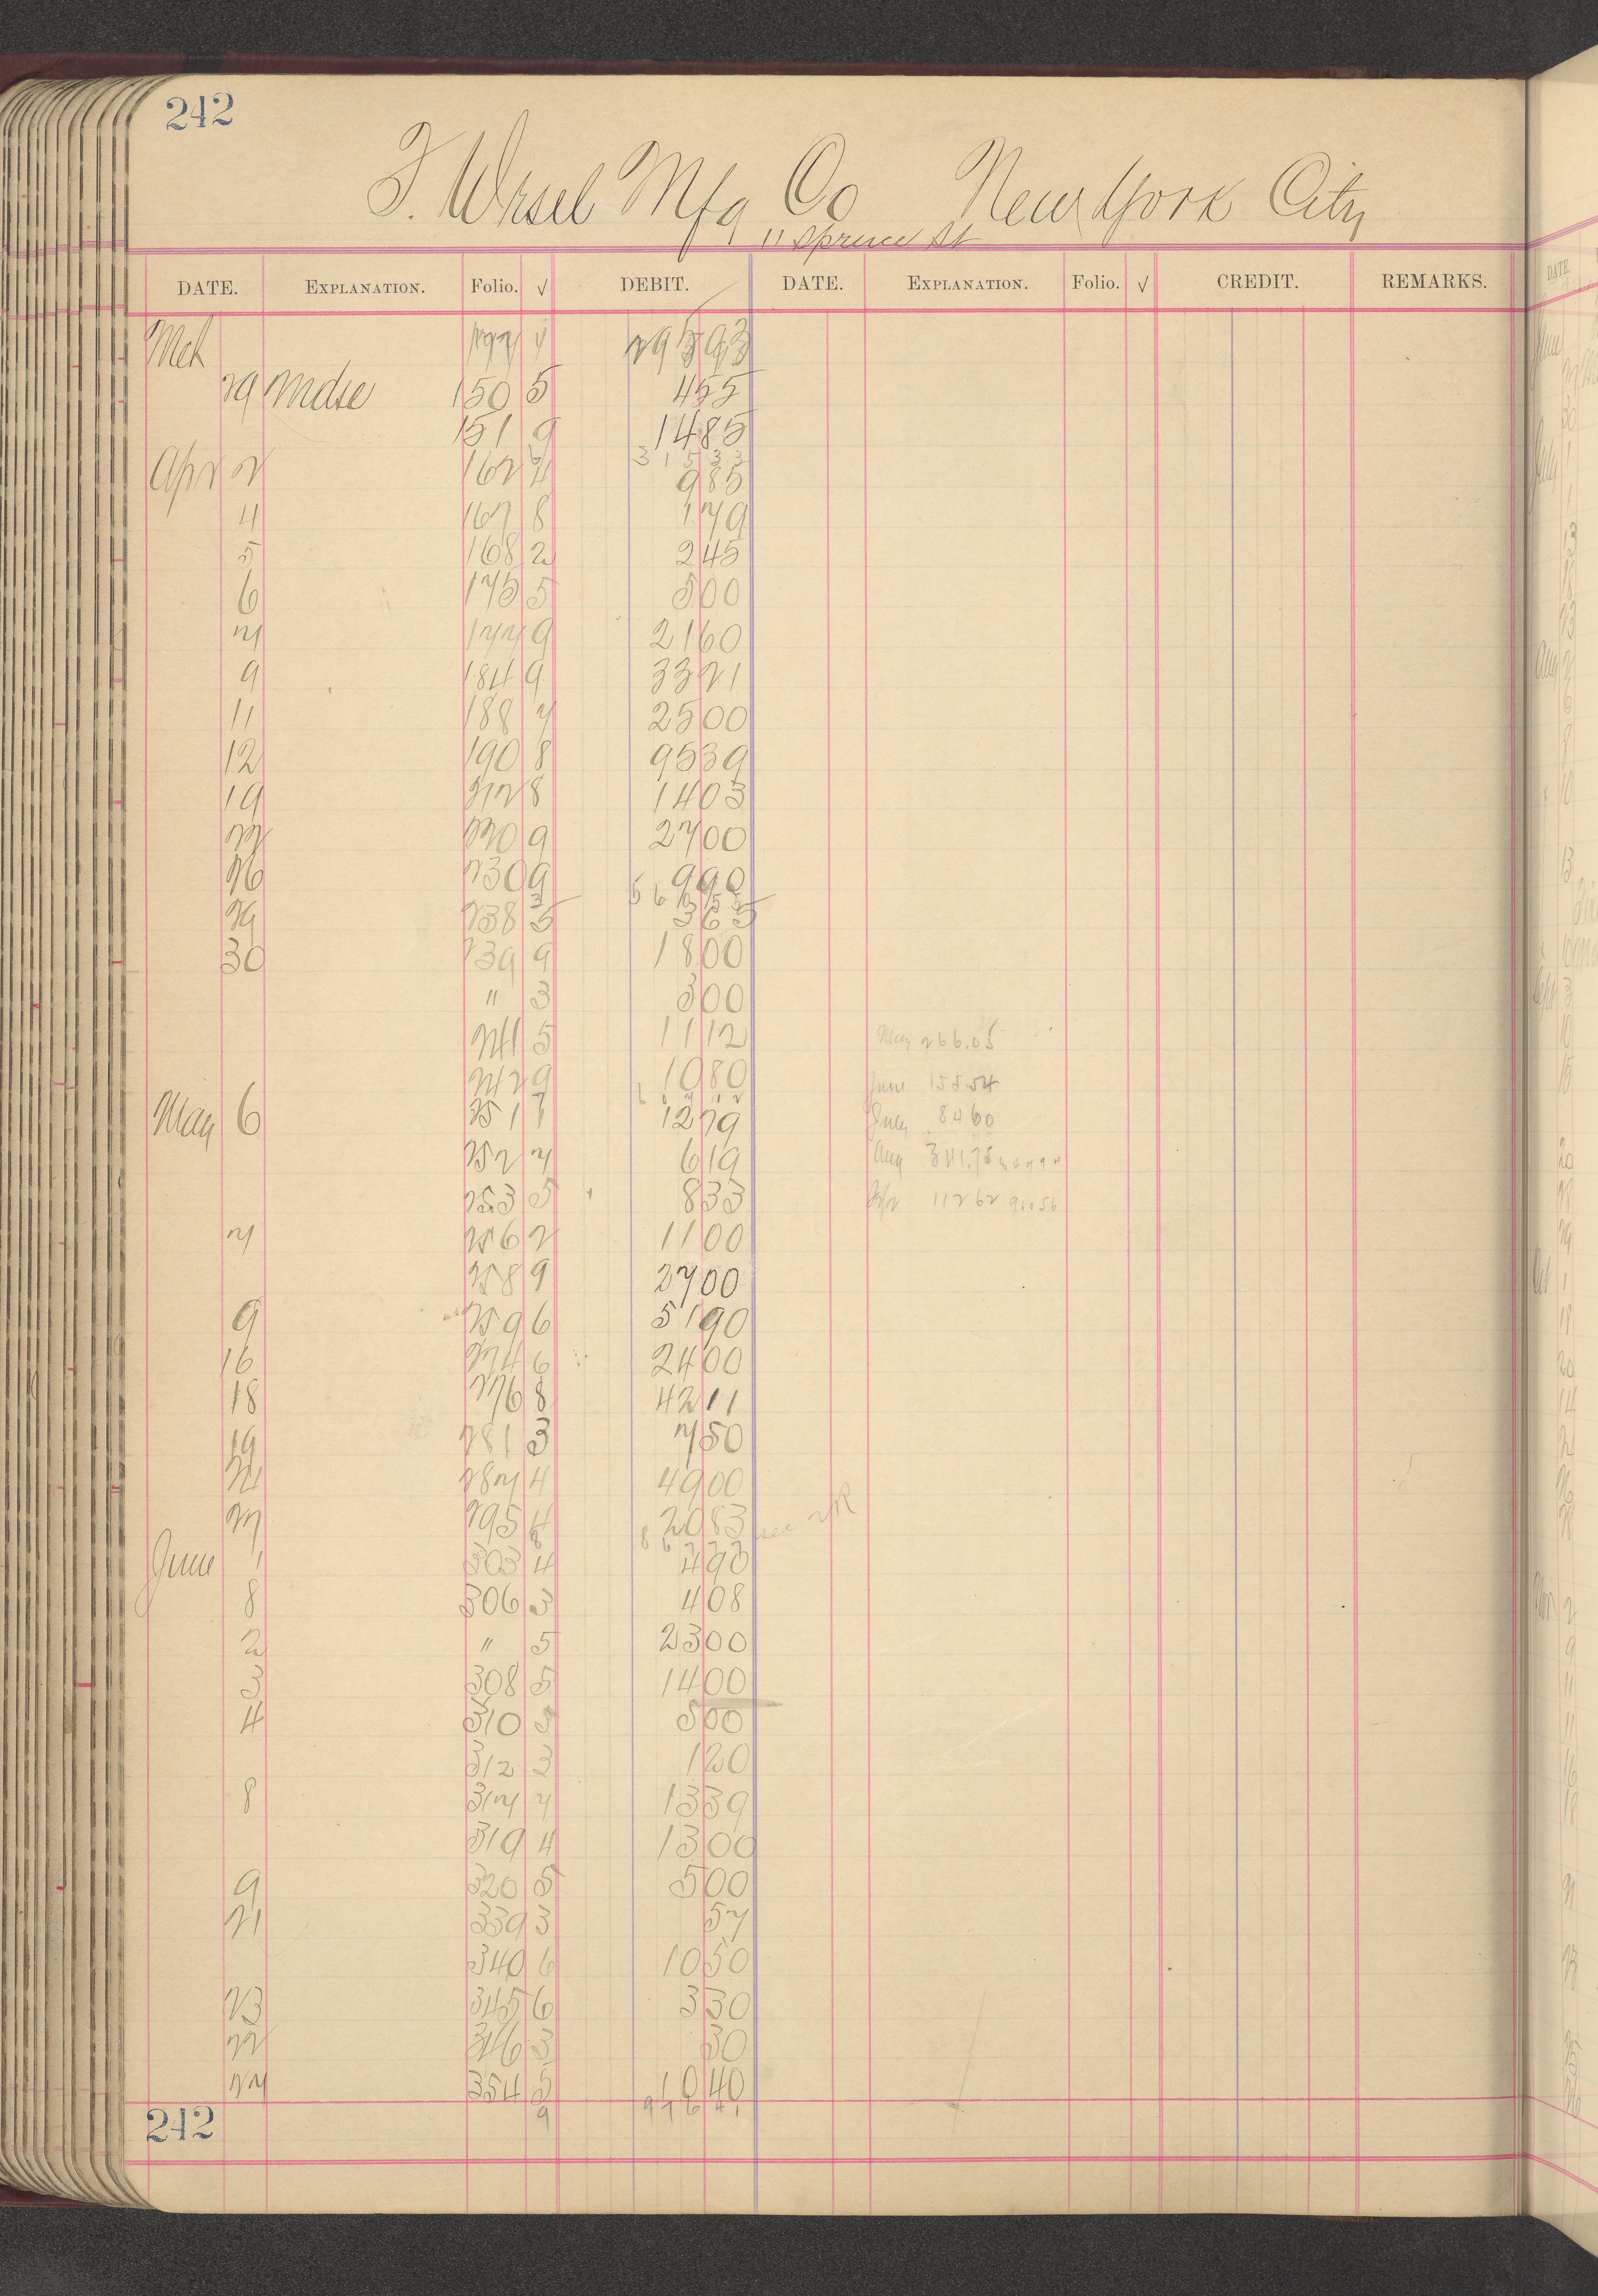 242
F. Wesel Mfg Co New York City
11 Spruce St
DATE. EXPLANATION. Folio. √ DEBIT. DATE. EXPLANATION. Folio. √ CREDIT. REMARKS.
Mch 295 93
29 Mdse 150 5 4 55
151 9 14 85
3 1 5 3 3
Apr 2 162 4 9 85
4 167 8 1 79
5 168 2 2 45
6 175 5 5 00
7 177 9 21 60
9 184 9 33 21
11 188 7 25 00
12 190 8 95 39
19 212 8 14 03
22 220 9 27 00
26 230 9 9 90
29 238 5 3 65
30 239 9 18 00
" 3 3 00
241 5 11 12 May 266.05
242 9 10 80 June 155.54
May 6 251 7 12 79 July 84 60
252 7 6 19 Aug 341.75
253 5 8 33 112 62
7 256 2 11 00
258 9 27 00
9 259 6 51 90
16 274 6 24 00
18 276 8 42 11
19 281 3 7 50
24 287 4 49 00
27 295 4 20 83
June 1 303 4 4 90
8 306 3 4 08
2 " 5 23 00
3 308 5 14 00
4 310 5 5 00
312 3 1 20
8 317 7 13 39
319 4 13 00
9 320 5 5 00
21 339 3 57
340 6 10 50
23 345 6 3 30
22 346 3 30
27 354 5 10 40
242